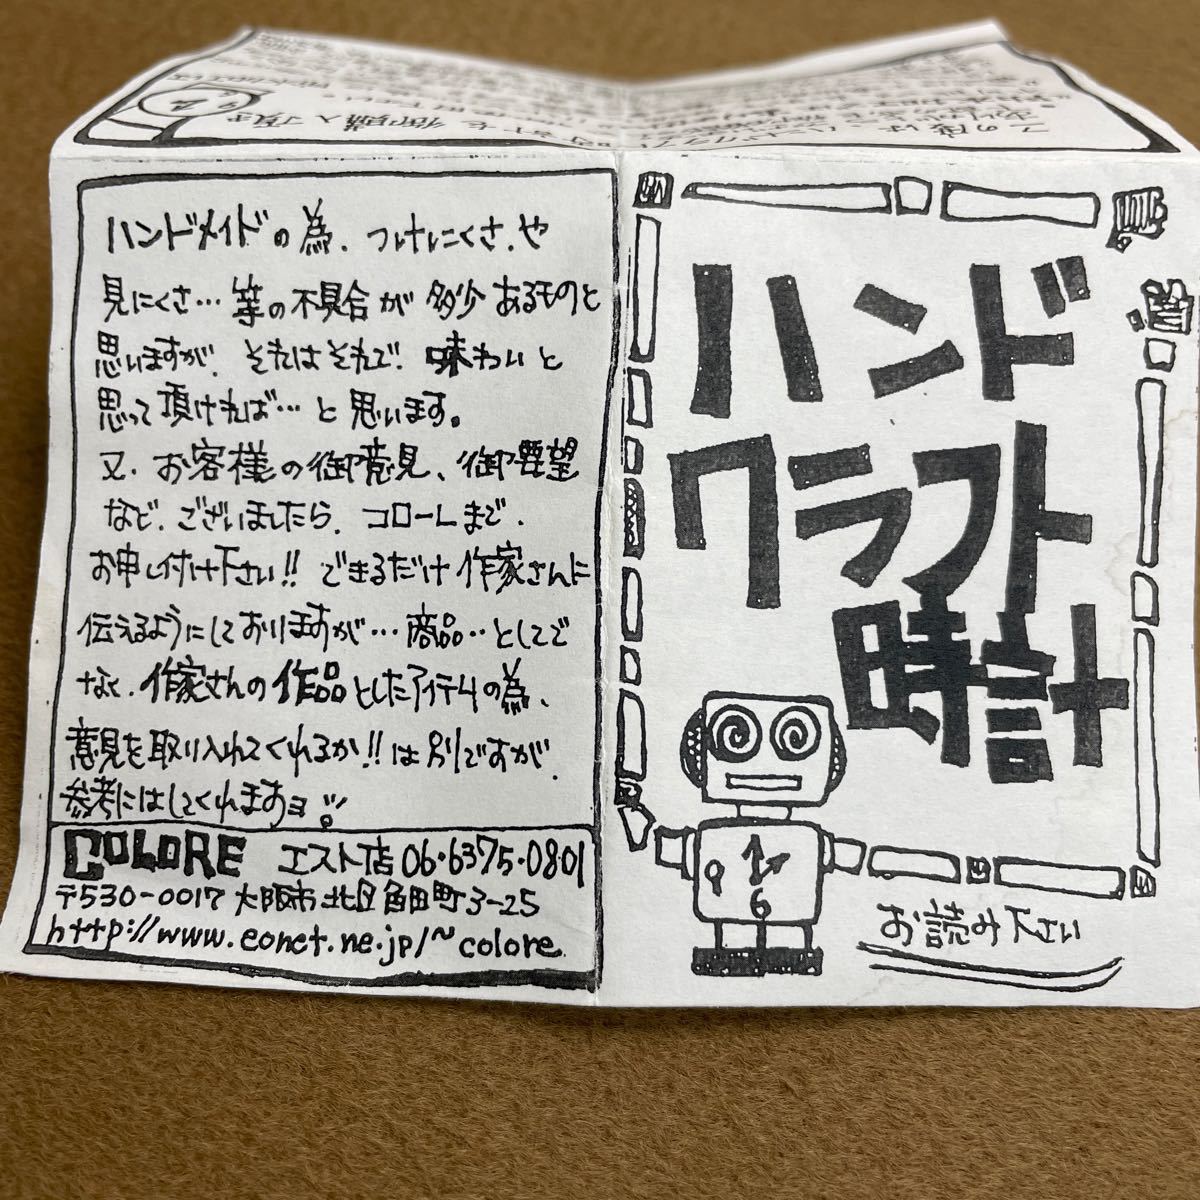 ハンドメイドの為、つけにくさ、や
見にくさ…等の不具合が多少あるものと
思いますが、それはそれで、味わいと
思って頂ければ…と思います。
又、お客様の御意見、御要望
など、ございましたら、コローレまで、
お申し付け下さい!! できるだけ作家さんに
伝えるようにしておりますが…商品‥としてで
なく、作家さんの作品としたアイテムの為、
意見を取り入れてくれるか!!は別ですが、
参考にはしてくれますョ。
COLORE エスト店 06・6375・0801
〒530-0017 大阪市北区角田町3-25
http://www.eonet.ne.jp/~colore
ハンド
クラフト
時計
9 6
お読み下さい
この度は
御購入頂き